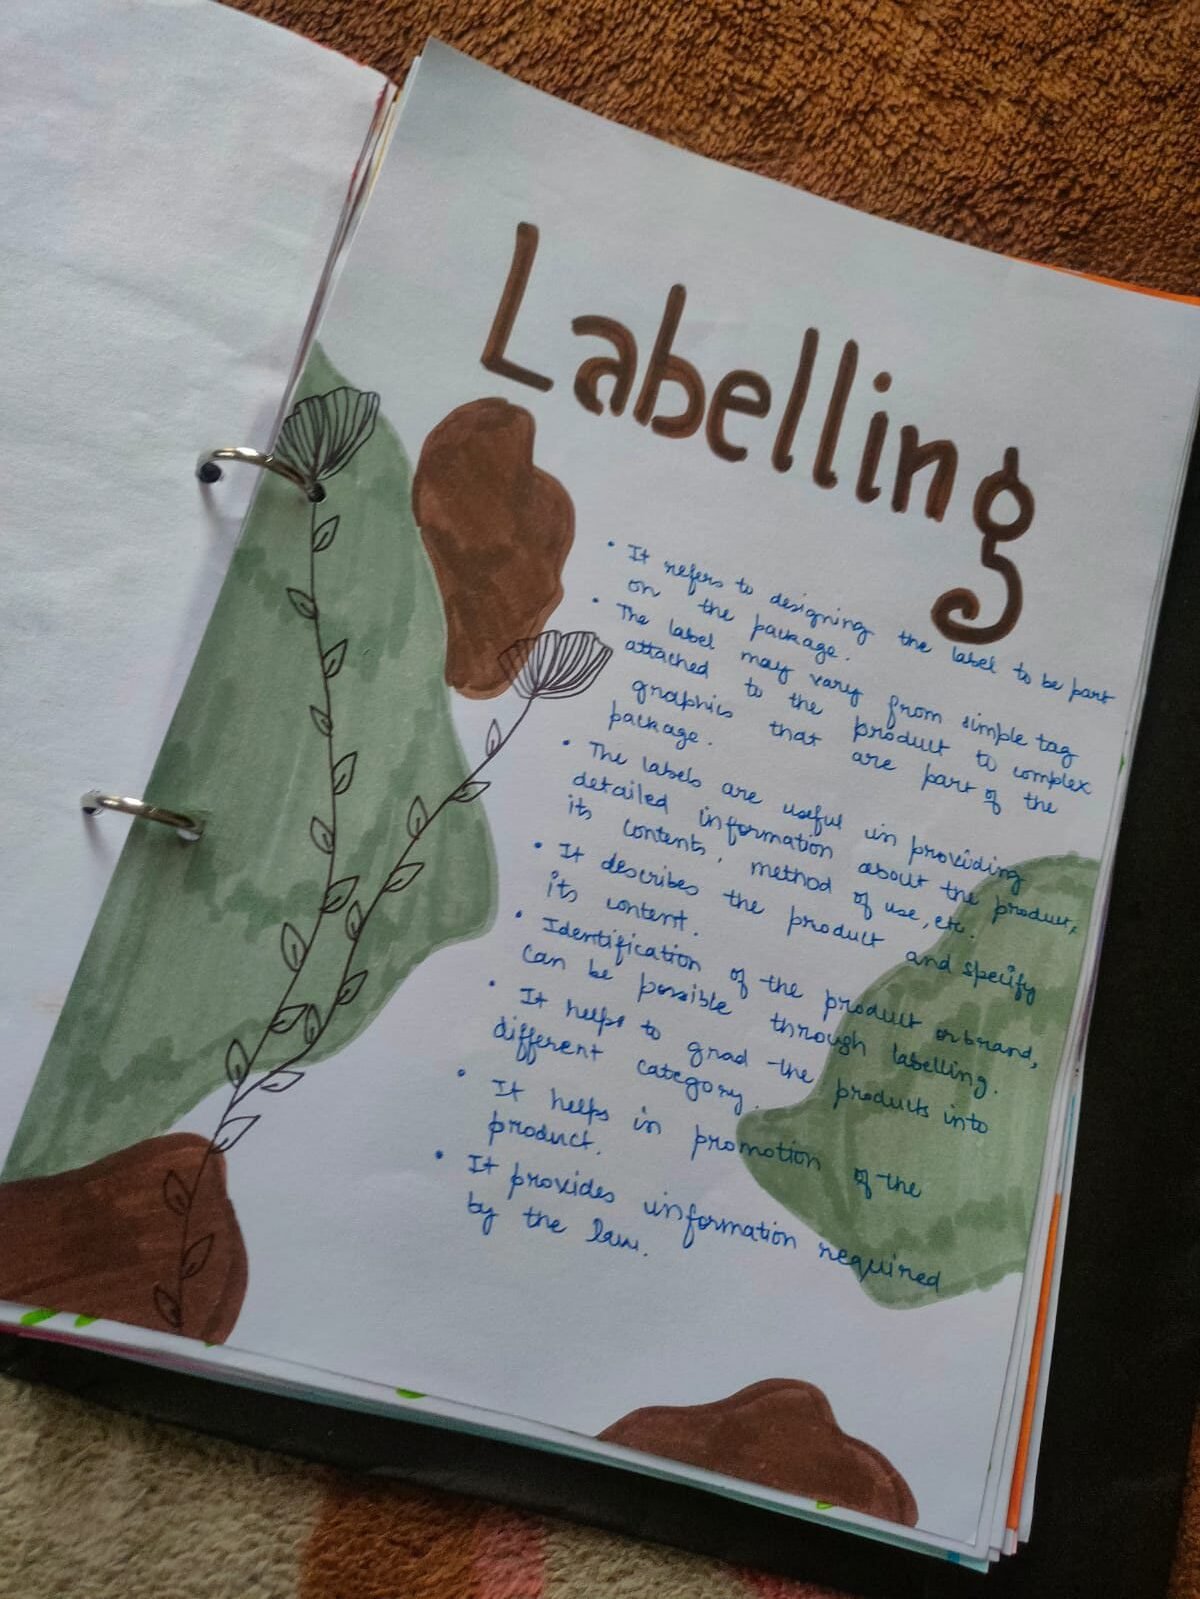 Labelling
• It refers to designing the label to be part
on the package.
• The label may vary from simple tag
attached to the product to complex
graphics that are part of the
package.
• The labels are useful in providing
detailed information about the product,
its contents, method of use, etc.
• It describes the product and specify
its content.
• Identification of the product or brand,
can be possible through labelling.
• It helps to grad the products into
different category.
• It helps in promotion of the
product.
• It provides information required
by the law.